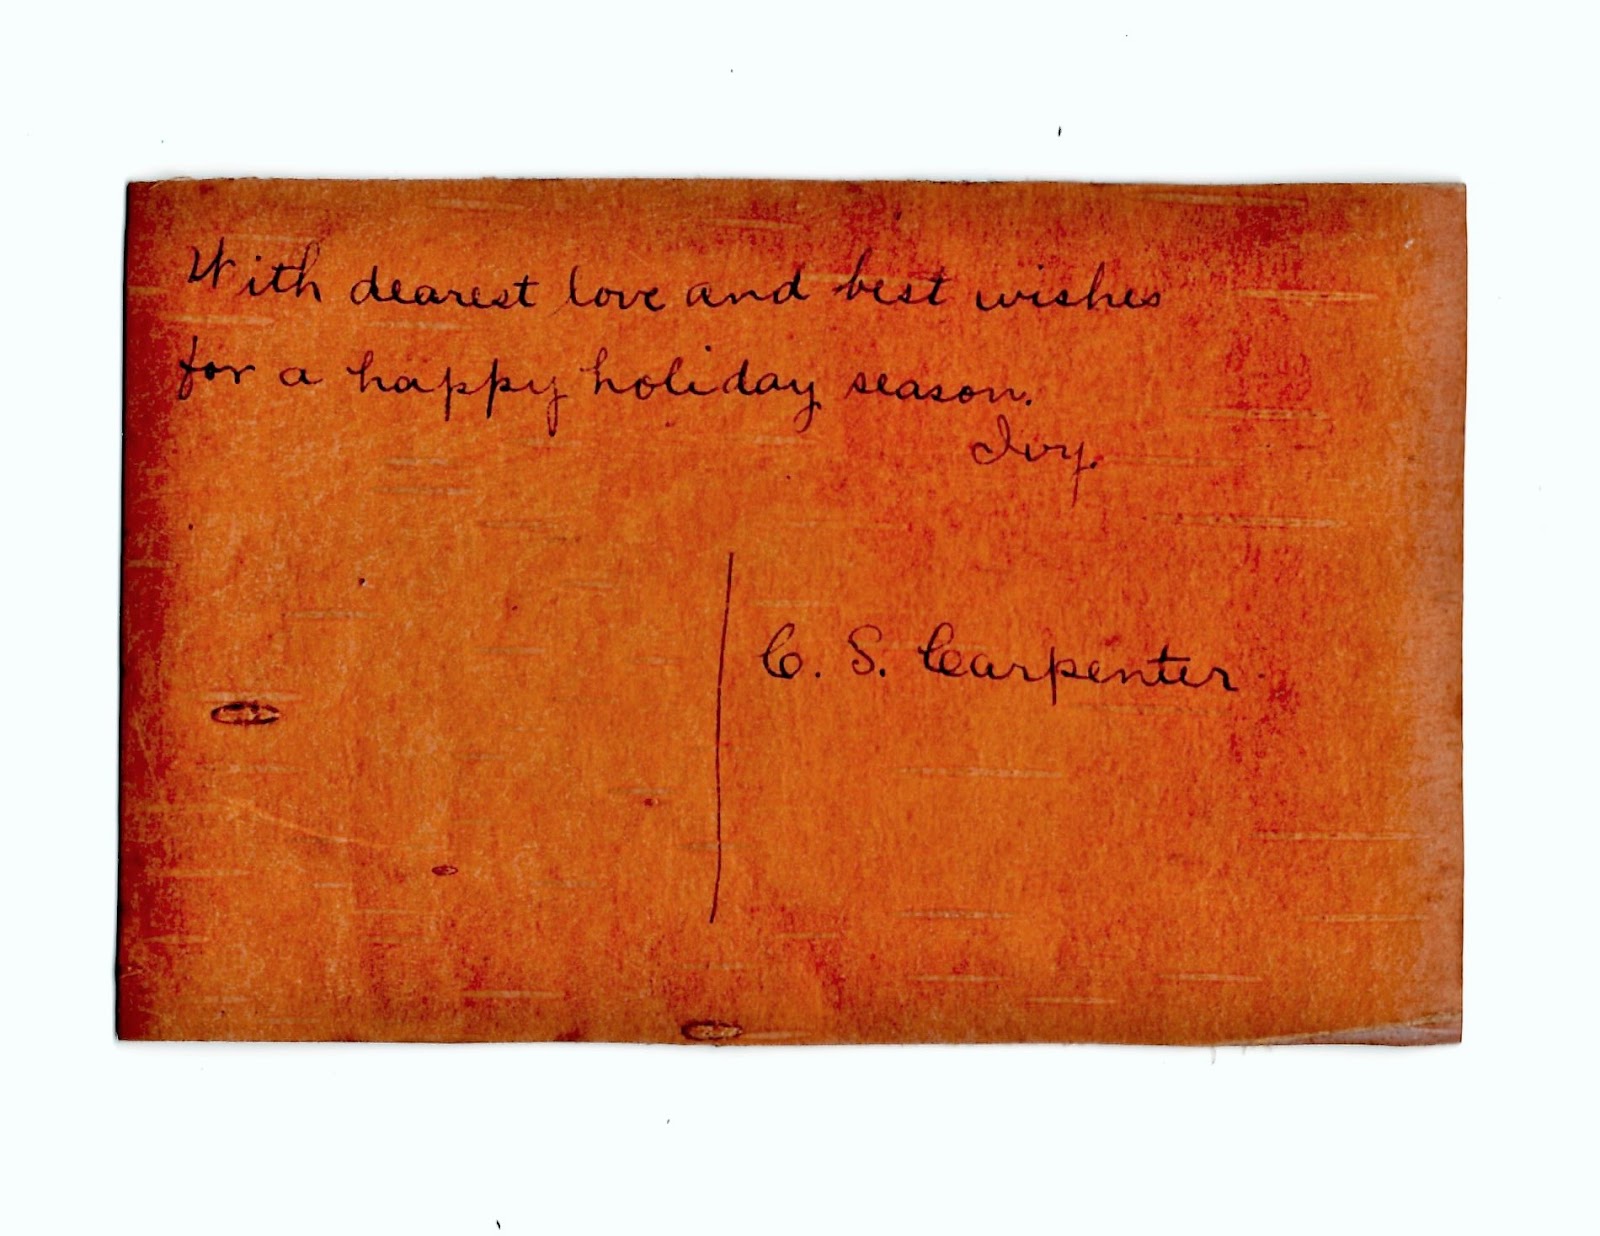 With dearest love and best wishes
for a happy holiday season.
Ivy.
C. S. Carpenter